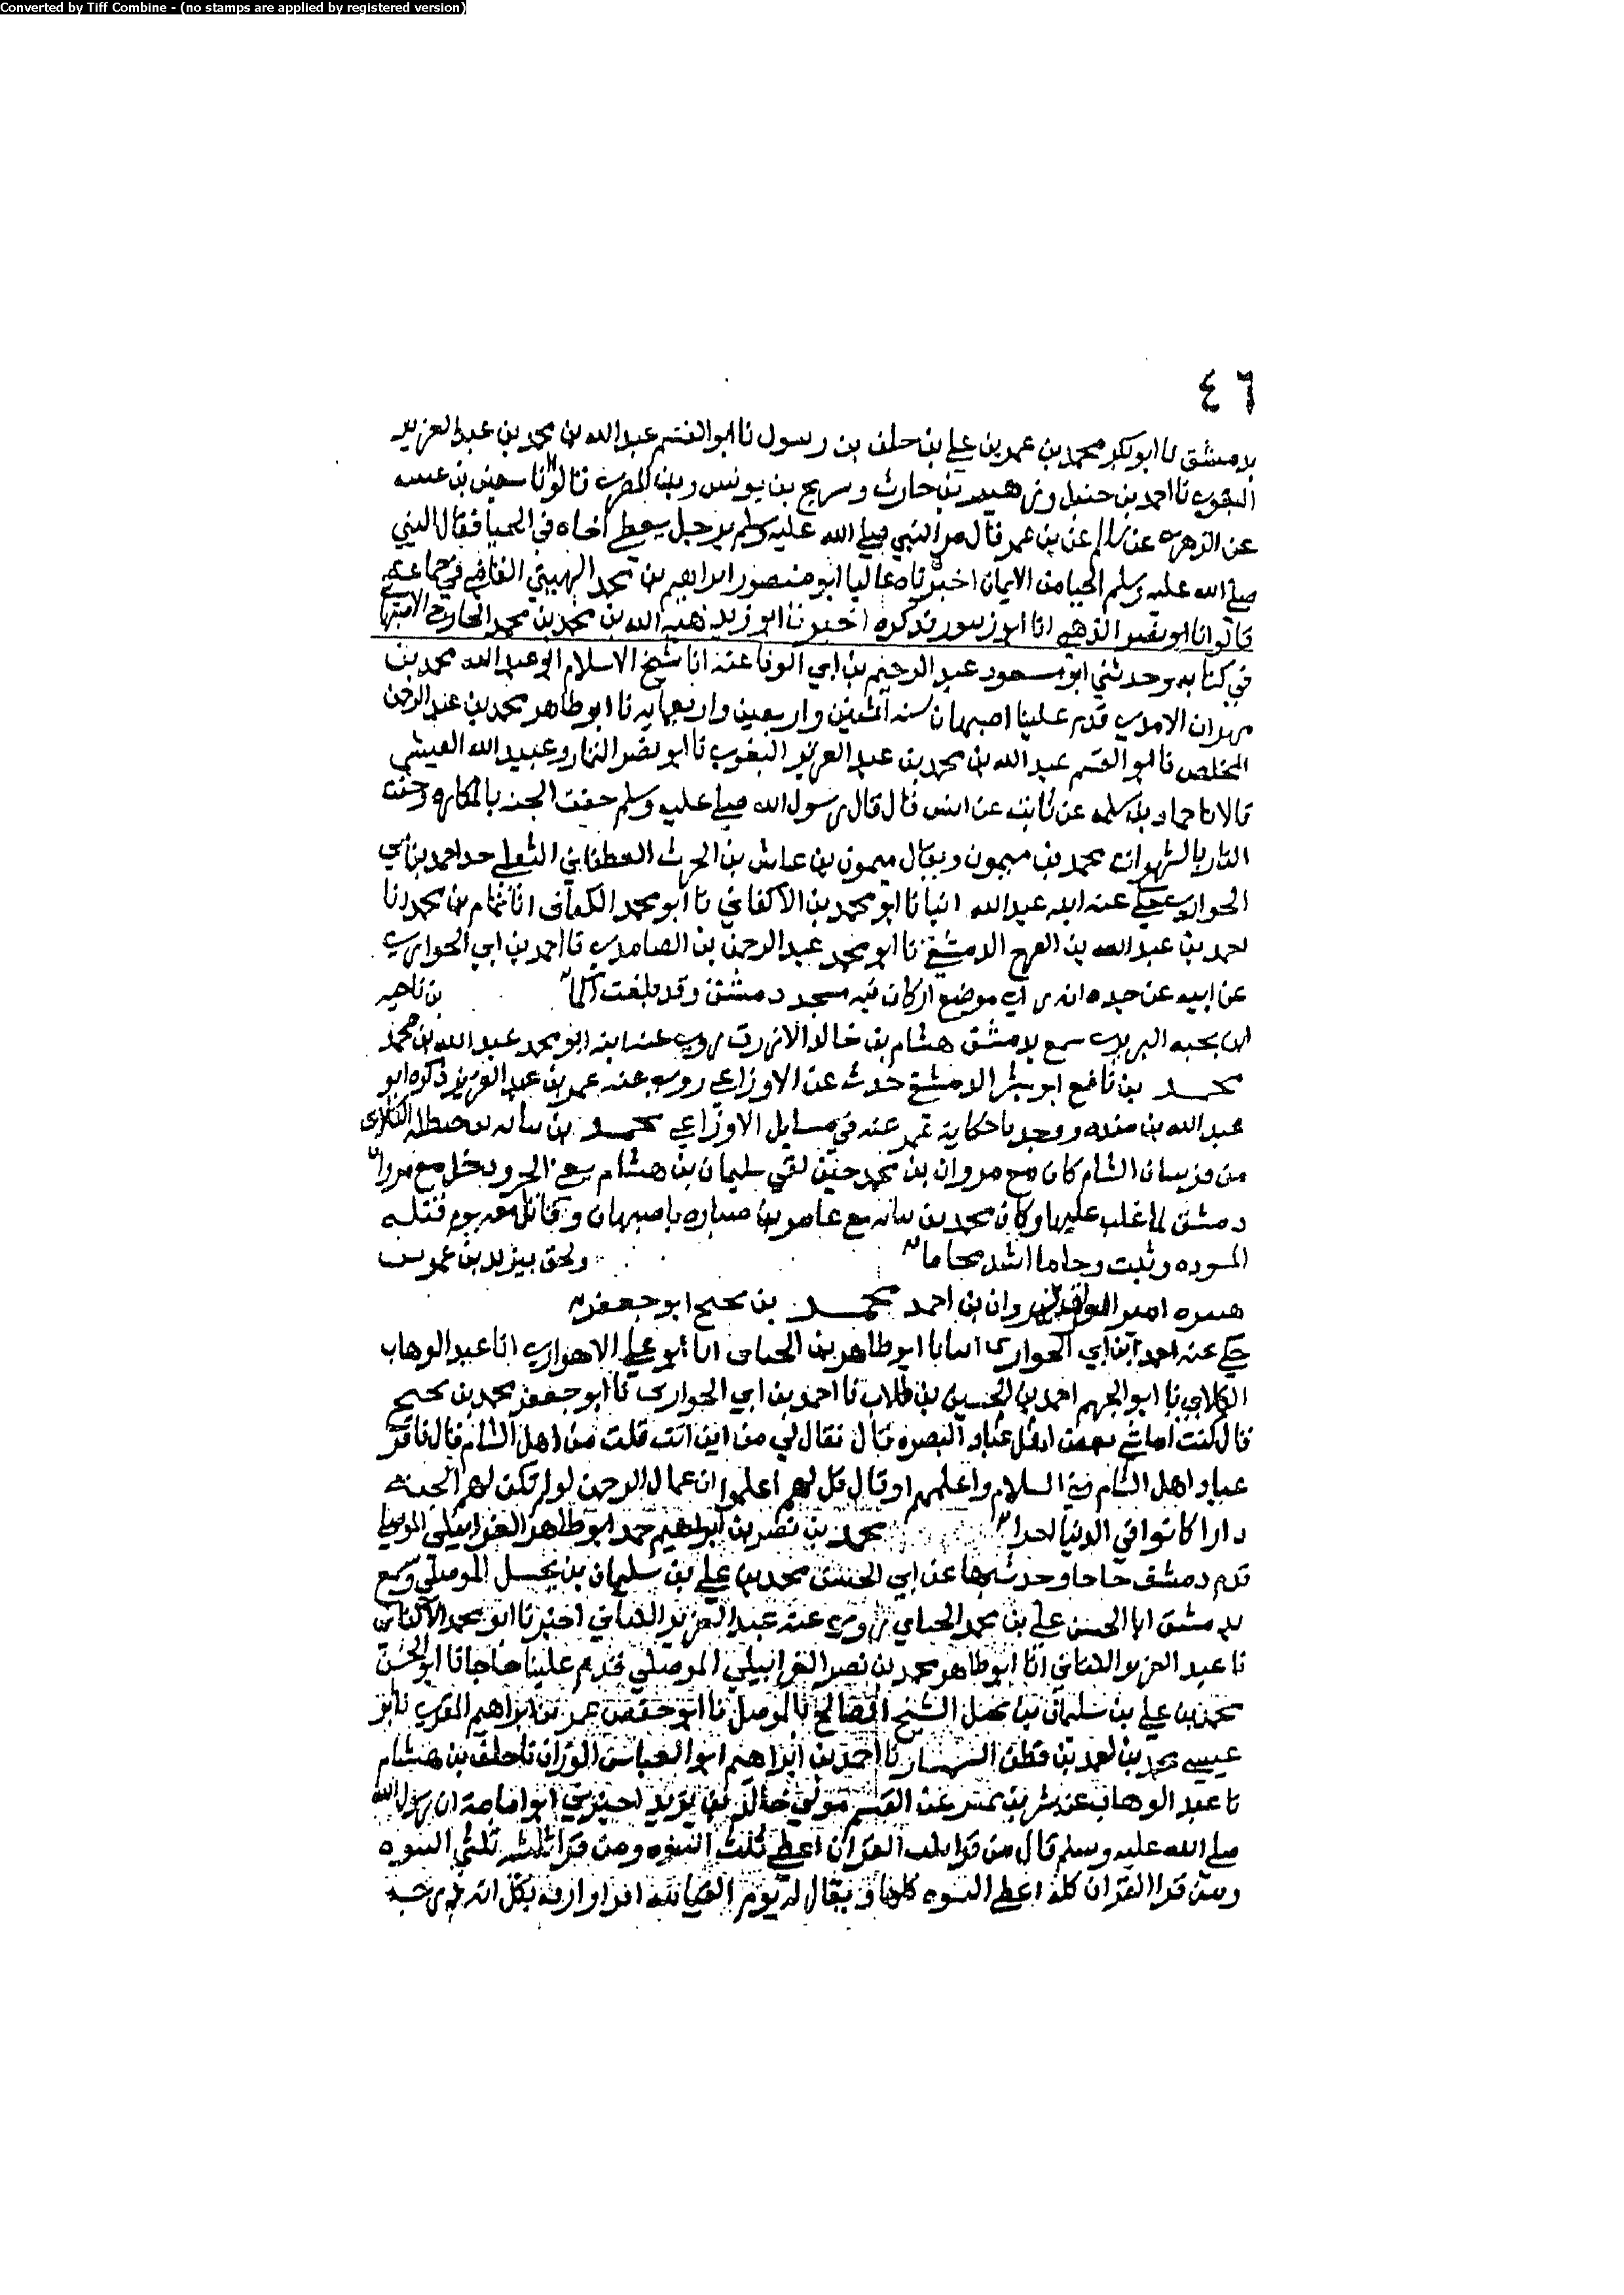 Converted by Tiff Combine - (no stamps are applied by registered version)
٤٦
بدمشق نا ابو بكر محمد بن عمر بن علي بن خلف بن رسول نا ابو القسم عبد الله بن محمد بن عبد العزيز
البغوي نا احمد بن حنبل وزهير بن حارث وسريج بن يونس وبن المقري قالوا نا سفين بن عيينه
عن الزهري عن سالم عن بن عمر قال مر النبي صلى الله عليه وسلم برجل يعظ اخاه في الحيا فقال النبي
صلى الله عليه وسلم الحيا من الايمان اخبرناه عاليا ابو منصور ابراهيم بن محمد الهيتي القاضي في جماعه
قالوا انا ابو نصر الزهي انا ابو زنبور فذكره اخبرنا ابو زيد هبه الله بن محمد بن محمد
في كتابه وحدثني ابو مسعود عبد الرحيم بن ابي الوفا عنه انا شيخ الاسلام ابو عبد الله محمد بن
مهران الامدي قدم علينا اصبهان سنه اثنتين واربعين واربعمايه نا ابو طاهر محمد بن عبد الرحمن
المخلص نا ابو القسم عبد الله بن محمد بن عبد العزيز البغوي نا ابو نصر التمار وعبيد الله العيشي
قالا نا حماد بن سلمه عن ثابت عن انس قال قال رسول الله صلى عليه وسلم حفت الجنه بالمكاره وحفت
النار بالشهوات محمد بن ميمون ويقال ميمون بن عاش بن الحرث الغطفاني الثعلبي جد احمد بن ابي
الحواري حكى عنه ابنه عبد الله انبانا ابو محمد بن الاكفاني نا ابو محمد الكتاني انا تمام بن محمد انا
احمد بن عبد الله بن الفرج الدمشقي نا ابو محمد عبد الرحمن بن الصامدي نا احمد بن ابي الحواري
عن ابيه عن جده انه راي موضع اركان قبه مسجد دمشق وقد بلغت الما بن ناجيه
ابن نجبه البربري سمع بدمشق هشام بن خالد الازرق روى عنه ابنه ابو محمد عبد الله بن محمد
محمد بن نافع ابو بشر الدمشقي حدث عن الاوزاعي روى عنه عمر بن عبد العزيز ذكره ابو
عبد الله بن منده ووجد ناحكايه عمر عنه في مسايل الاوزاعي محمد بن نباته بن حنظله الكلابي
من فرسان الشام كان مع مروان بن محمد حين لقي سليمان بن هشام بعين الجر ودخل مع مروان
دمشق لما غلب عليها وكان محمد بن نباته مع عامر بن ضباره باصبهان وقاتل معه يوم قتله
المسوده وثبت وحاما اشد محاماه ولحق بيزيد بن عمر بن
هبيره امير العراقين لمروان بن احمد محمد بن نجيح ابو جعفر
حكى عنه احمد ابن ابي الحواري انبانا ابو طاهر بن الحنائي انا ابو علي الاهوازي انا عبد الوهاب
الكلابي نا ابو الجهم احمد بن الحسين بن طلاب نا احمد بن ابي الحواري نا ابو جعفر محمد بن نجيح
قال كنت اماشي بعض عباد البصره قال فقال لي من اين انت قلت من اهل الشام قال فاقر
عباد اهل الشام مني السلام واعلمهم او قال قل لهم اعلموا ان عمال الرحمن لو لم تكن لهم الجنه
دارا كانوا في الدنيا احرارا محمد بن نصر بن ابراهيم حمد ابو طاهر الغرابيلي الموصلي
قدم دمشق حاجا وحدث بها عن ابي الحسن محمد بن علي بن سليمان بن يحسل الموصلي وسمع
بدمشق ابا الحسن علي بن محمد الحنائي روى عنه عبد العزيز الكتاني اخبرنا ابو محمد الاكفاني
نا عبد العزيز الكتاني انا ابو طاهر محمد بن نصر الغرابيلي الموصلي قدم علينا حاجا نا ابو الحسن
محمد بن علي بن سليمان بن الشيخ الصالح بالموصل نا ابو حفص عمر بن ابراهيم المقري نا ابو
عيسى محمد بن احمد بن قطن السمسار نا احمد بن ابراهيم ابو العباس الوراق نا خلف بن هشام
نا عبد الوهاب عن بشر بن نمير عن القسم مولى خالد بن يزيد اخبرني ابو امامه ان رسول الله
صلى الله عليه وسلم قال من قرا ثلث القران اعطي ثلث النبوه ومن قرا ثلثيه ثلثي النبوه
ومن قرا القران كله اعطي النبوه كلها ويقال له يوم القيامه اقرا وارقه بكل ايه درجه